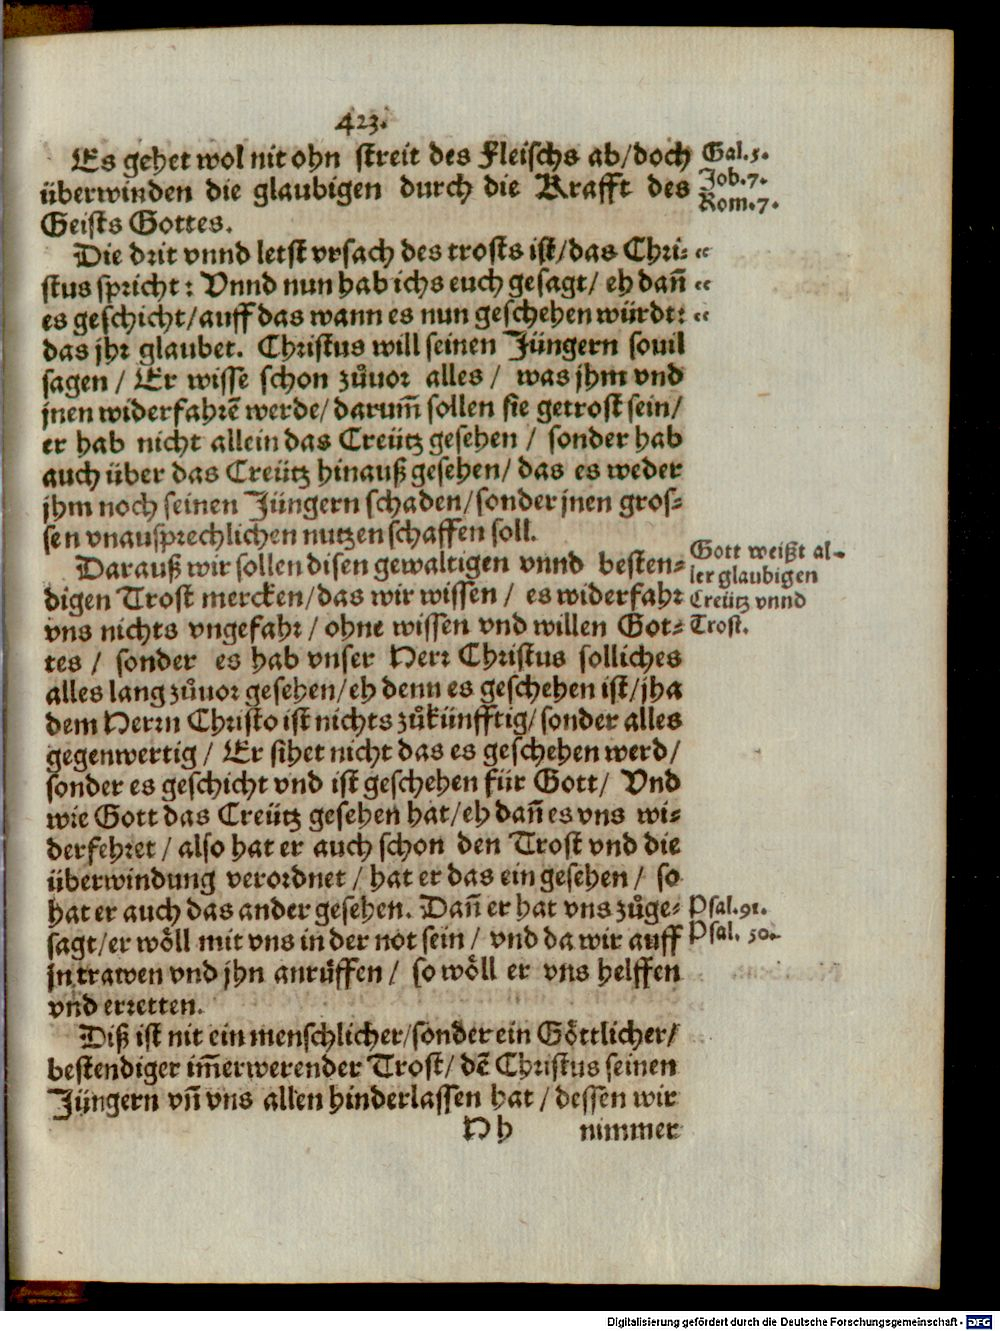 423.
Es gehet wol nit ohn streit des Fleischs ab/doch
überwinden die glaubigen durch die Krafft des
Geists Gottes.
Gal.5.
Job.7.
Rom.7.
Die drit vnnd letst vrsach des trosts ist/das Chri- “
stus spricht: Vnnd nun hab ichs euch gesagt/ eh dañ “
es geschicht/auff das wann es nun geschehen würdt: “
das jhr glaubet. Christus will seinen Jüngern souil
sagen / Er wisse schon zůuor alles / was jhm vnd
jnen widerfahrẽ werde/ darum̃ sollen sie getrost sein/
er hab nicht allein das Creütz gesehen / sonder hab
auch über das Creütz hinauß gesehen/ das es weder
jhm noch seinen Jüngern schaden/sonder jnen gros-
sen vnausprechlichen nutzen schaffen soll.
Darauß wir sollen disen gewaltigen vnnd besten-
digen Trost mercken/das wir wissen / es widerfahr
vns nichts vngefahr / ohne wissen vnd willen Got-
tes / sonder es hab vnser Herr Christus solliches
alles lang zůuor gesehen/eh denn es geschehen ist/jha
dem Herrn Christo ist nichts zůkünfftig/sonder alles
gegenwertig / Er sihet nicht das es geschehen werd/
sonder es geschicht vnd ist geschehen für Gott/ Vnd
wie Gott das Creütz gesehen hat/eh dañ es vns wi-
derfehret / also hat er auch schon den Trost vnd die
überwindung verordnet / hat er das ein gesehen / so
hat er auch das ander gesehen. Dañ er hat vns zůge-
sagt/er wöll mit vns in der not sein / vnd da wir auff
jn trawen vnd jhn anrůffen / so wöll er vns helffen
vnd erretten.
Gott weißt al-
ler glaubigen
Creütz vnnd
Trost.
Psal.91.
Psal. 50.
Diß ist nit ein menschlicher/sonder ein Göttlicher/
bestendiger im̃erwerender Trost/ dẽ Christus seinen
Jüngern vñ vns allen hinderlassen hat / dessen wir
Hh nimmer
Digitalisierung gefördert durch die Deutsche Forschungsgemeinschaft - DFG